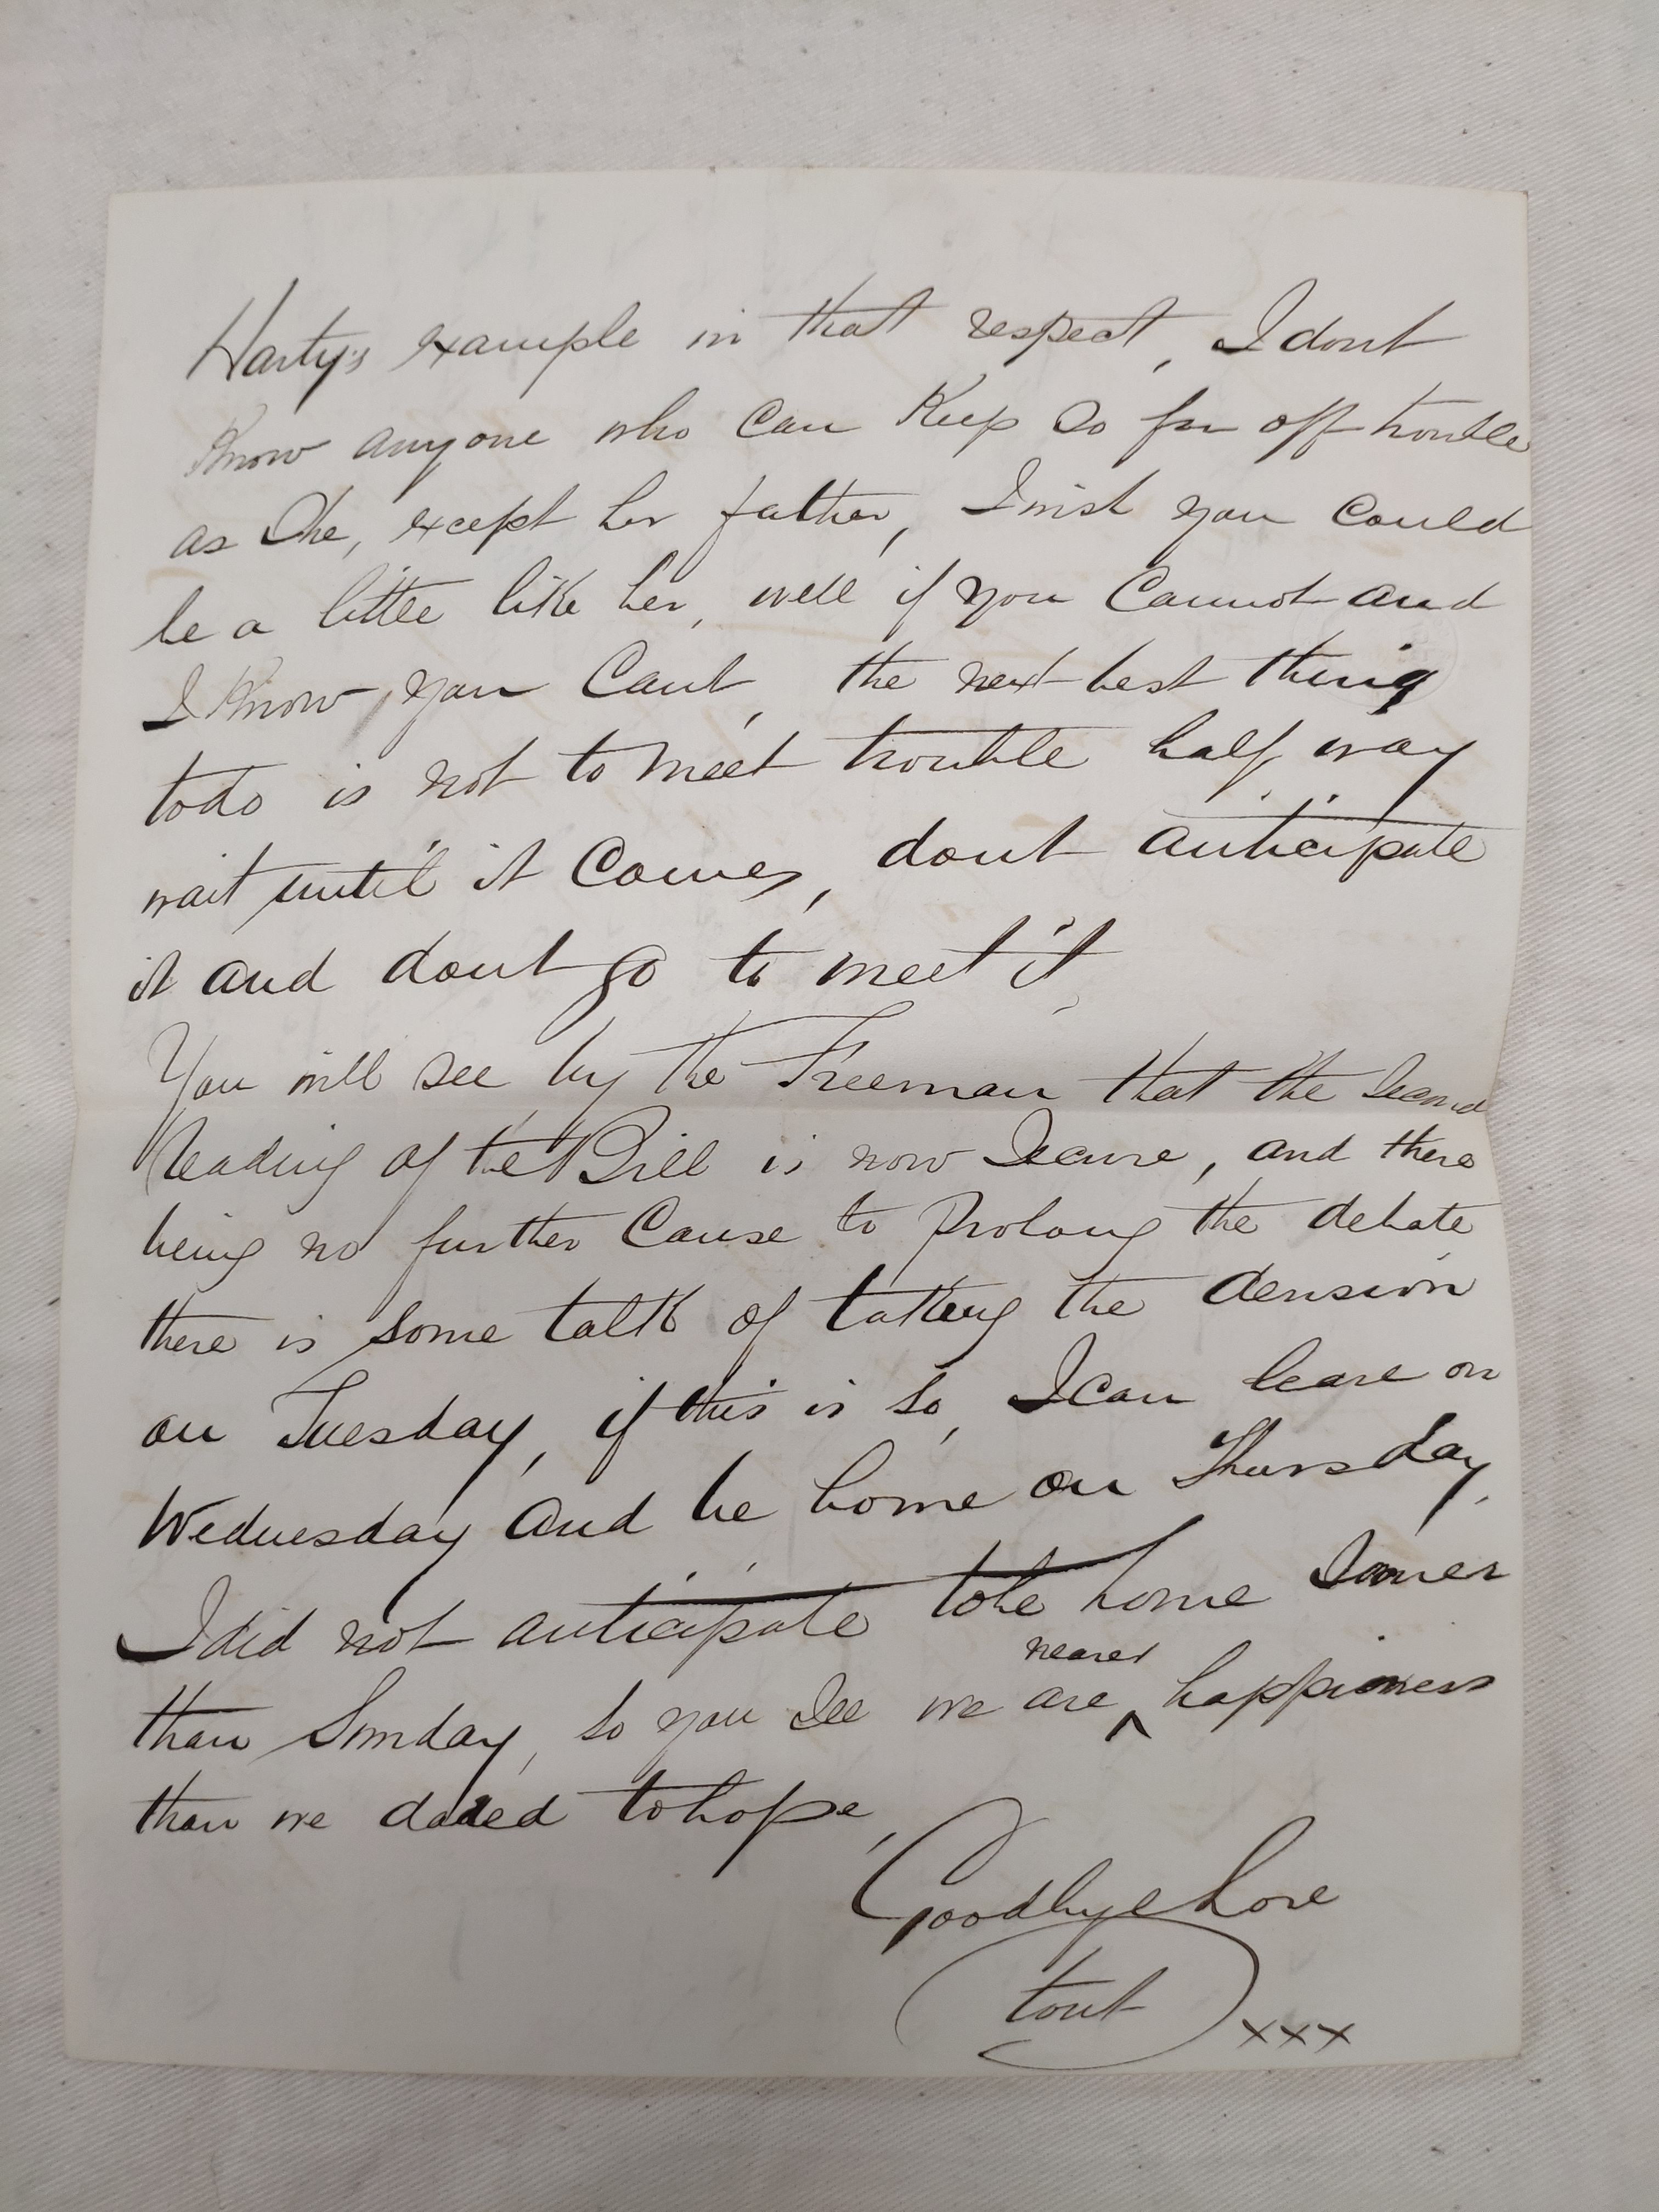 Harty's example in that respect, I dont
Know anyone who can Keep so far off trouble
as She, except her father, I wish you could
be a little like her, well if you Cannot and
I Know you Cant, the next best thing
to do is not to meet trouble half way
wait until it Comes, dont anticipate
it and dont go to meet it,
You will see by the Freeman that the Second
Reading of the Bill is now Secure, and there
being no further Cause to Prolong the debate
there is some talk of taking the division
on Tuesday, if this is so, I can leave on
Wednesday and be home on Thursday,
I did not anticipate to be home Sooner
than Sunday, so you See we are nearer happiness
than we dared to hope,
Goodbye Love
tout
xxx